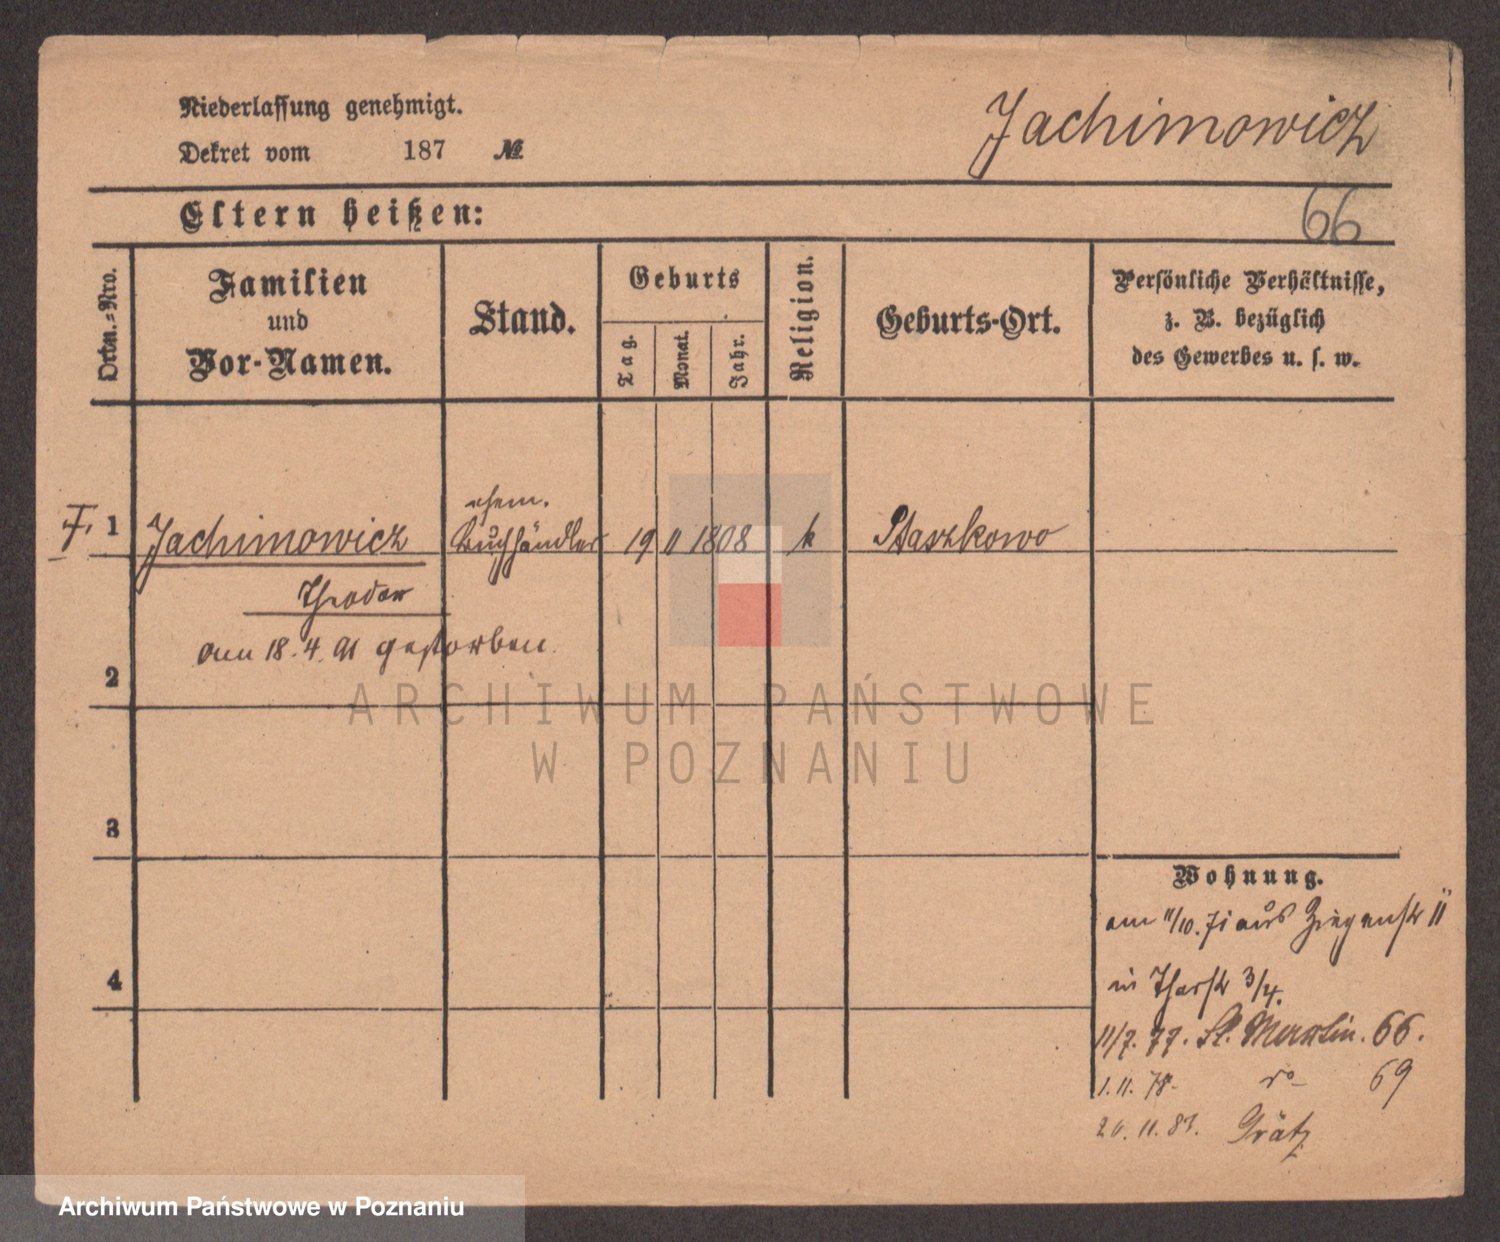 Niederlassung genehmigt.
Jachimowicz
Dekret vom 187 №
Eltern heißen:
66
Ordn.-Nro.
Familien
und
Vor-Namen.
Stand.
Geburts
Tag.
Monat.
Jahr.
Religion.
Geburts-Ort.
Persönliche Verhältnisse,
z. B. bezüglich
des Gewerbes u. s. w.
ehem.
F. 1 Jachimowicz Buchhändler 19 11 1808 k Staszkowo
Theodor
am 18. 4. 91 gestorben
2
3
4
Wohnung.
am 11/10. 71 aus Ziegenstr 11
in Thorstr 3/4.
11/7. 77. St. Martin. 66.
1. 11. 78. do 69
11. Grätz
ARCHIWUM PAŃSTWOWE
W POZNANIU
Archiwum Państwowe w Poznaniu